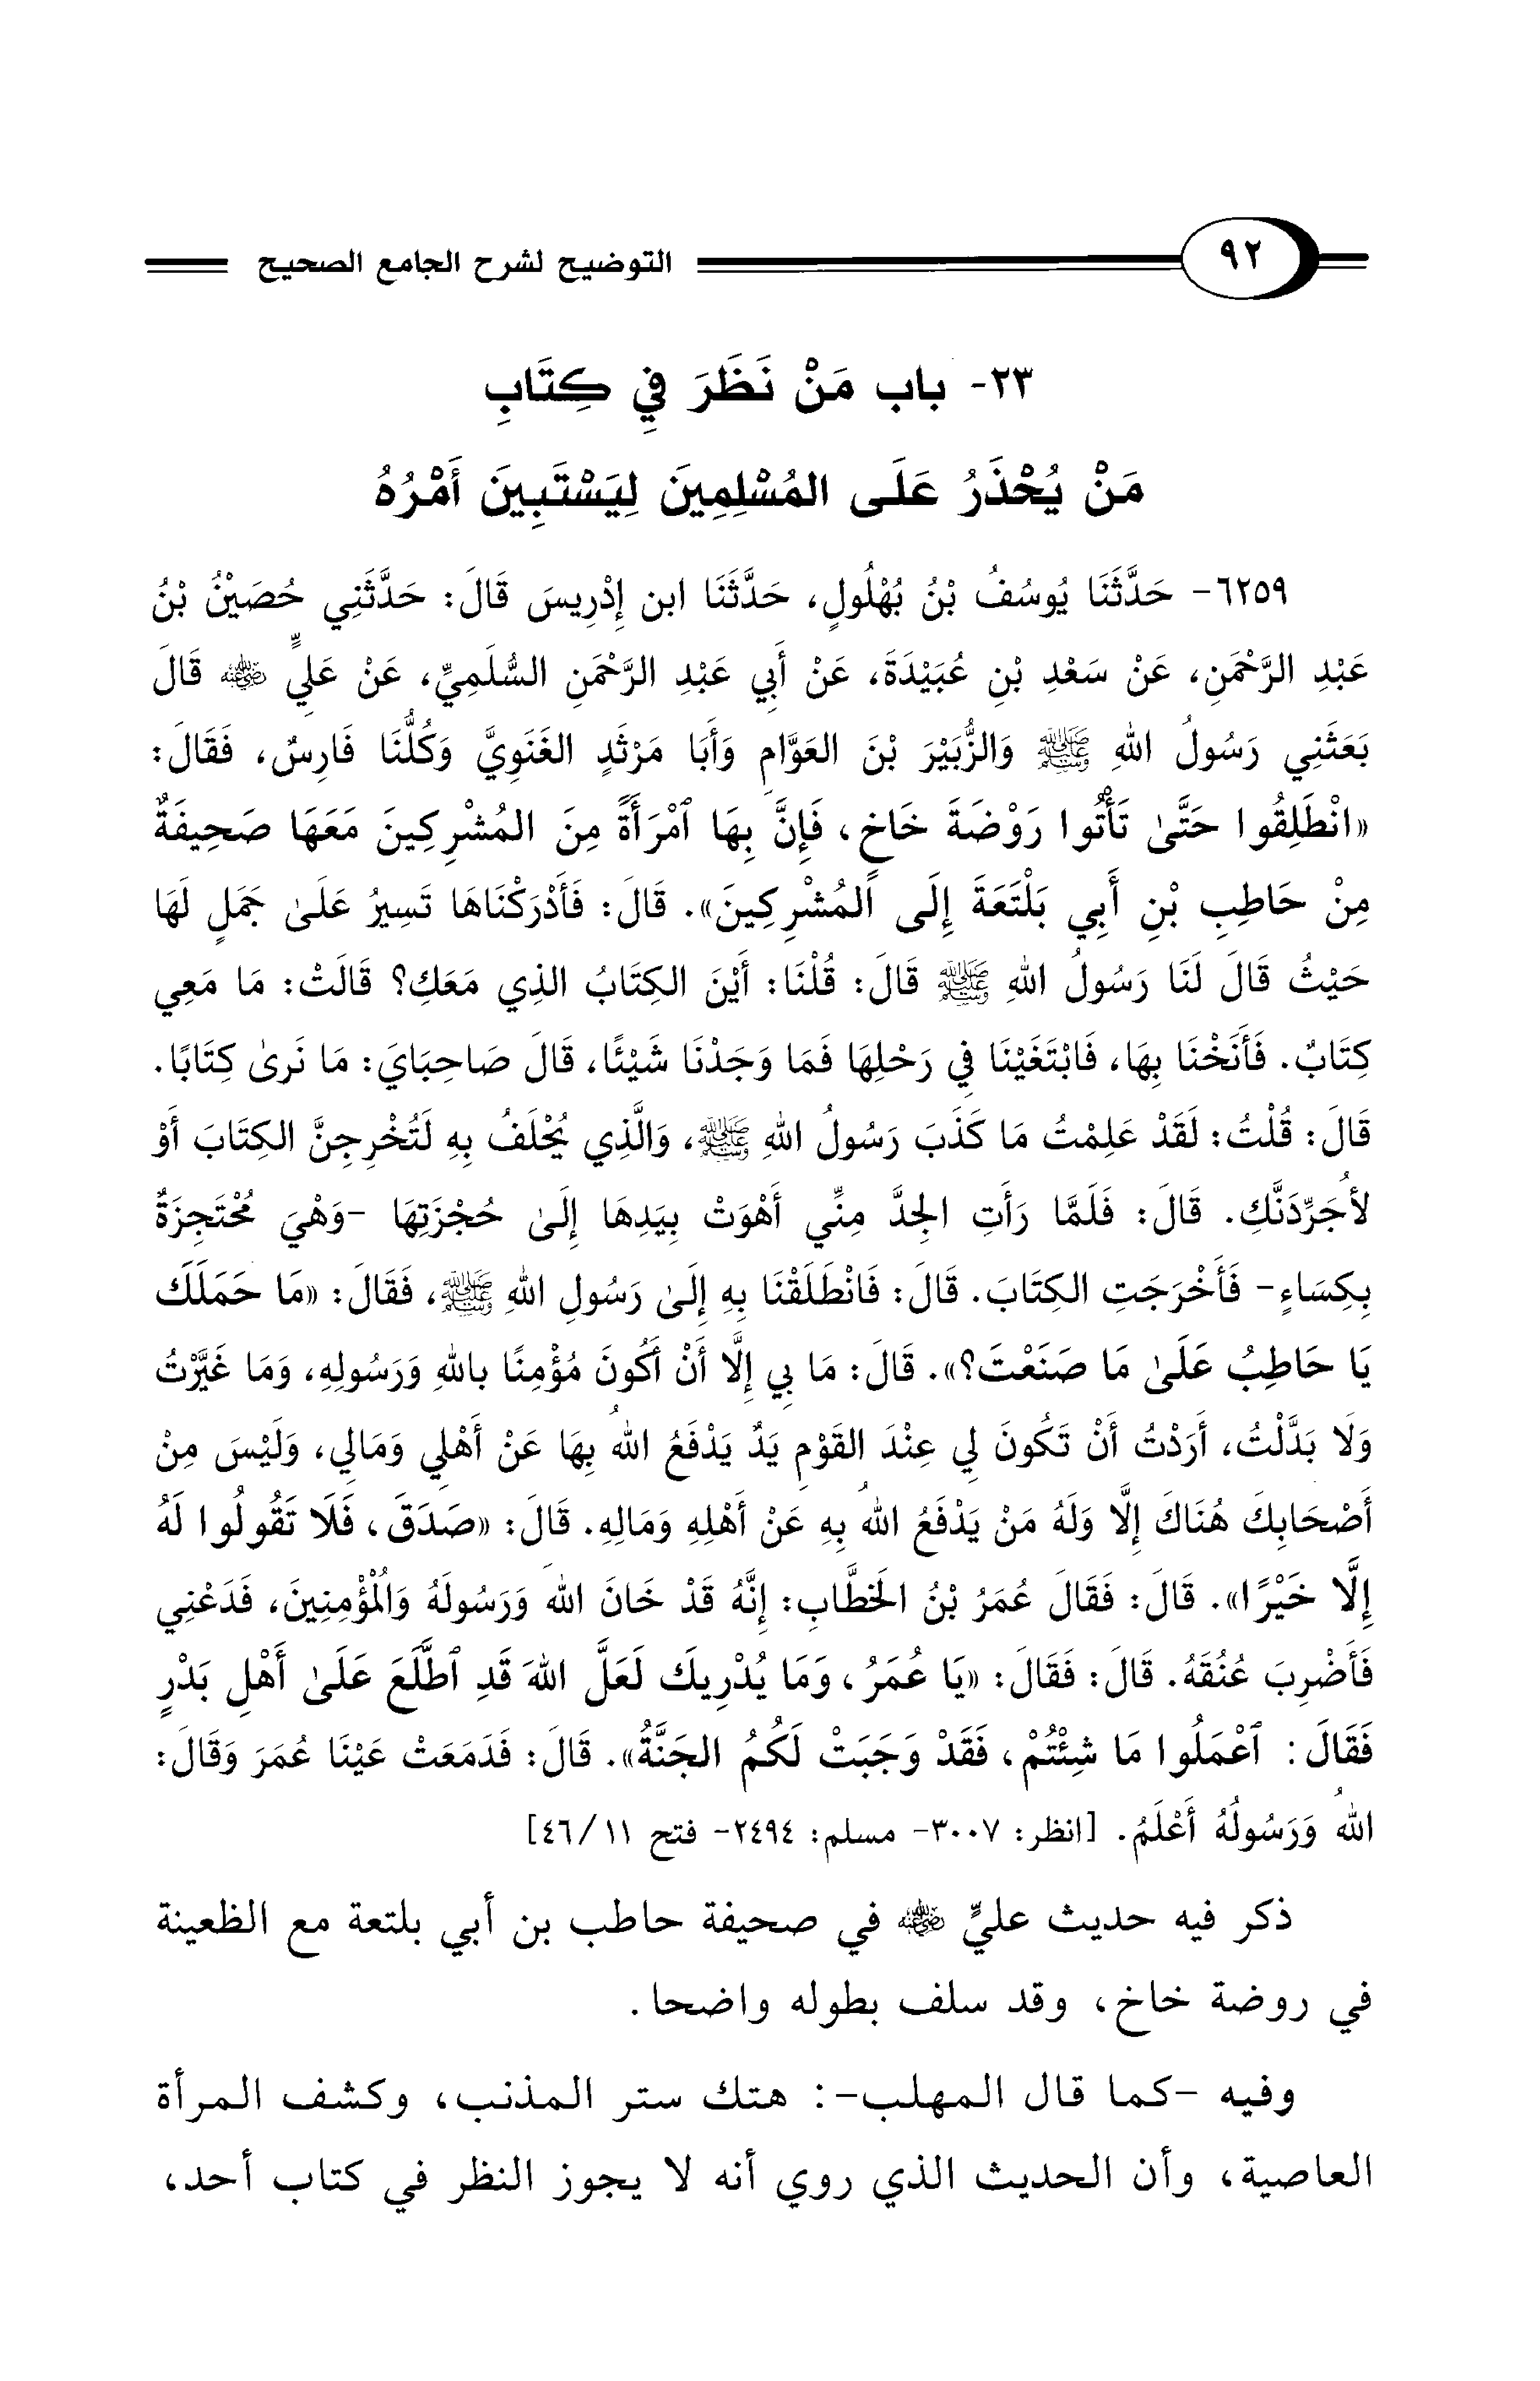 ٩٢
التوضيح لشرح الجامع الصحيح
٢٣- باب مَنْ نَظَرَ فِي كِتَابِ
مَنْ يُحْذَرُ عَلَى المُسْلِمِينَ لِيَسْتَبِينَ أَمْرُهُ
٦٢٥٩- حَدَّثَنَا يُوسُفُ بْنُ بُهْلُولٍ، حَدَّثَنَا ابن إِدْرِيسَ قَالَ: حَدَّثَنِي حُصَيْنُ بْنُ
عَبْدِ الرَّحْمَنِ، عَنْ سَعْدِ بْنِ عُبَيْدَةَ، عَنْ أَبِي عَبْدِ الرَّحْمَنِ السُّلَمِيِّ، عَنْ عَلِيٍّ رضي الله عنه قَالَ
بَعَثَنِي رَسُولُ اللهِ ﷺ وَالزُّبَيْرَ بْنَ العَوَّامِ وَأَبَا مَرْثَدٍ الغَنَوِيَّ وَكُلُّنَا فَارِسٌ، فَقَالَ:
«انْطَلِقُوا حَتَّىٰ تَأْتُوا رَوْضَةَ خَاخٍ، فَإِنَّ بِهَا ٱمْرَأَةً مِنَ المُشْرِكِينَ مَعَهَا صَحِيفَةٌ
مِنْ حَاطِبِ بْنِ أَبِي بَلْتَعَةَ إِلَى المُشْرِكِينَ». قَالَ: فَأَدْرَكْنَاهَا تَسِيرُ عَلَىٰ جَمَلٍ لَهَا
حَيْثُ قَالَ لَنَا رَسُولُ اللهِ ﷺ قَالَ: قُلْنَا: أَيْنَ الكِتَابُ الذِي مَعَكِ؟ قَالَتْ: مَا مَعِي
كِتَابٌ. فَأَنَخْنَا بِهَا، فَابْتَغَيْنَا فِي رَحْلِهَا فَمَا وَجَدْنَا شَيْئًا، قَالَ صَاحِبَايَ: مَا نَرىٰ كِتَابًا.
قَالَ: قُلْتُ: لَقَدْ عَلِمْتُ مَا كَذَبَ رَسُولُ اللهِ ﷺ، وَالَّذِي يُحْلَفُ بِهِ لَتُخْرِجِنَّ الكِتَابَ أَوْ
لأُجَرِّدَنَّكِ. قَالَ: فَلَمَّا رَأَتِ الجِدَّ مِنِّي أَهْوَتْ بِيَدِهَا إِلَىٰ حُجْزَتِهَا -وَهْيَ مُحْتَجِزَةٌ
بِكِسَاءٍ- فَأَخْرَجَتِ الكِتَابَ. قَالَ: فَانْطَلَقْنَا بِهِ إِلَىٰ رَسُولِ اللهِ ﷺ، فَقَالَ: «مَا حَمَلَكَ
يَا حَاطِبُ عَلَىٰ مَا صَنَعْتَ؟». قَالَ: مَا بِي إِلَّا أَنْ أَكُونَ مُؤْمِنًا باللهِ وَرَسُولِهِ، وَمَا غَيَّرْتُ
وَلَا بَدَّلْتُ، أَرَدْتُ أَنْ تَكُونَ لِي عِنْدَ القَوْمِ يَدٌ يَدْفَعُ اللهُ بِهَا عَنْ أَهْلِي وَمَالِي، وَلَيْسَ مِنْ
أَصْحَابِكَ هُنَاكَ إِلَّا وَلَهُ مَنْ يَدْفَعُ اللهُ بِهِ عَنْ أَهْلِهِ وَمَالِهِ. قَالَ: «صَدَقَ، فَلَا تَقُولُوا لَهُ
إِلَّا خَيْرًا». قَالَ: فَقَالَ عُمَرُ بْنُ الخَطَّابِ: إِنَّهُ قَدْ خَانَ اللهَ وَرَسُولَهُ وَالْمُؤْمِنِينَ، فَدَعْنِي
فَأَضْرِبَ عُنُقَهُ. قَالَ: فَقَالَ: «يَا عُمَرُ، وَمَا يُدْرِيكَ لَعَلَّ اللهَ قَدِ ٱطَّلَعَ عَلَىٰ أَهْلِ بَدْرٍ
فَقَالَ: ٱعْمَلُوا مَا شِئْتُمْ، فَقَدْ وَجَبَتْ لَكُمُ الجَنَّةُ». قَالَ: فَدَمَعَتْ عَيْنَا عُمَرَ وَقَالَ:
اللهُ وَرَسُولُهُ أَعْلَمُ. [انظر: ٣٠٠٧- مسلم: ٢٤٩٤- فتح ١١/ ٤٦]
ذكر فيه حديث عليٍّ رضي الله عنه في صحيفة حاطب بن أبي بلتعة مع الظعينة
في روضة خاخ، وقد سلف بطوله واضحا.
وفيه -كما قال المهلب-: هتك ستر المذنب، وكشف المرأة
العاصية، وأن الحديث الذي روي أنه لا يجوز النظر في كتاب أحد،